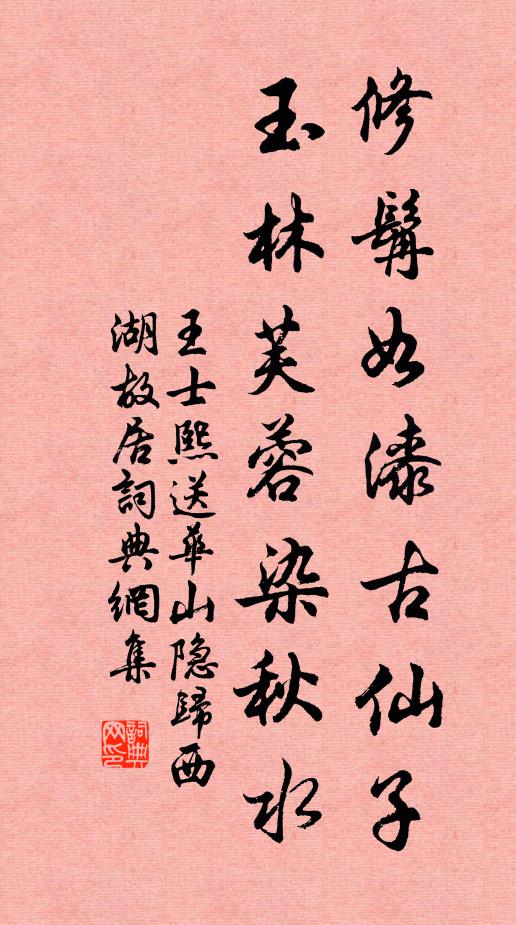 修髯如漆古仙子
玉林芙蓉染秋水
王士熙送華山隐歸西
湖故居詞典網集
詞典
网印